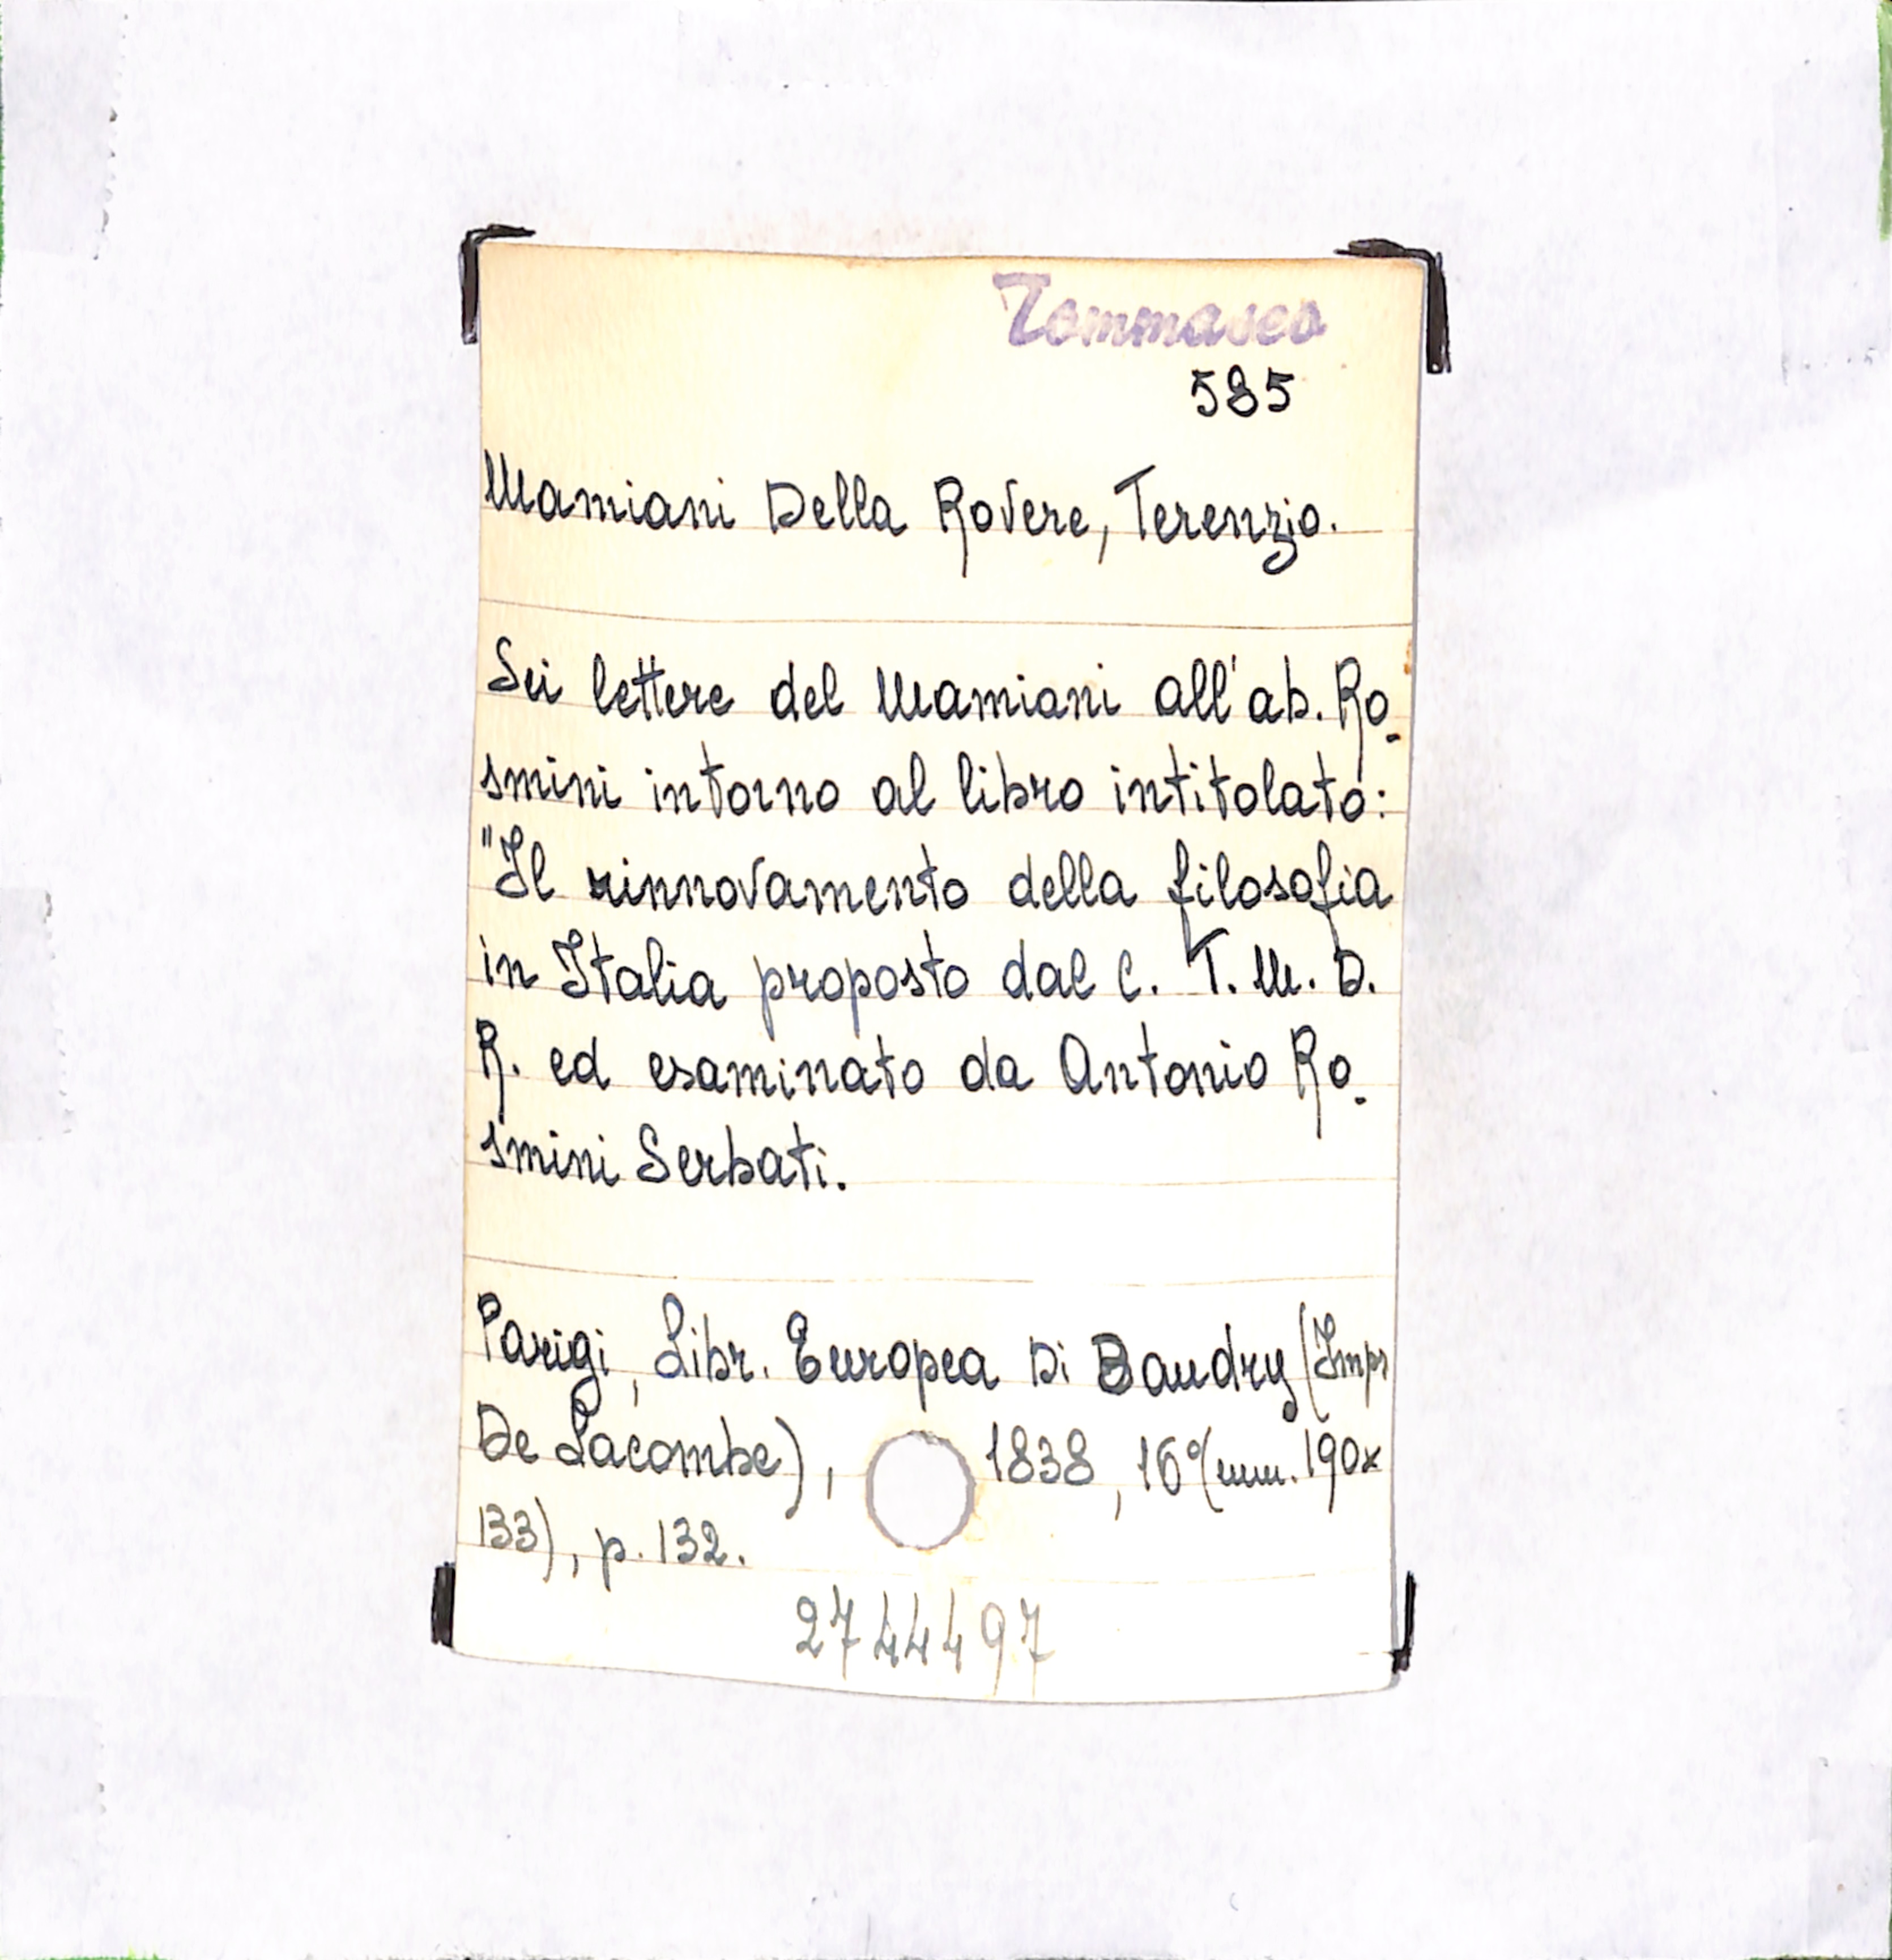 Tommaseo
585
Mamiani Della Rovere, Terenzio.
Sei lettere del Mamiani all'ab. Ro-
smini intorno al libro intitolato:
"Il rinnovamento della filosofia
in Italia proposto dal C. T. M. D.
R. ed esaminato da Antonio Ro-
smini Serbati.
Parigi, Libr. Europea Di Baudry (Impr
De Lacombe), 1838, 16° (mm. 190x
133), p. 132.
2744497